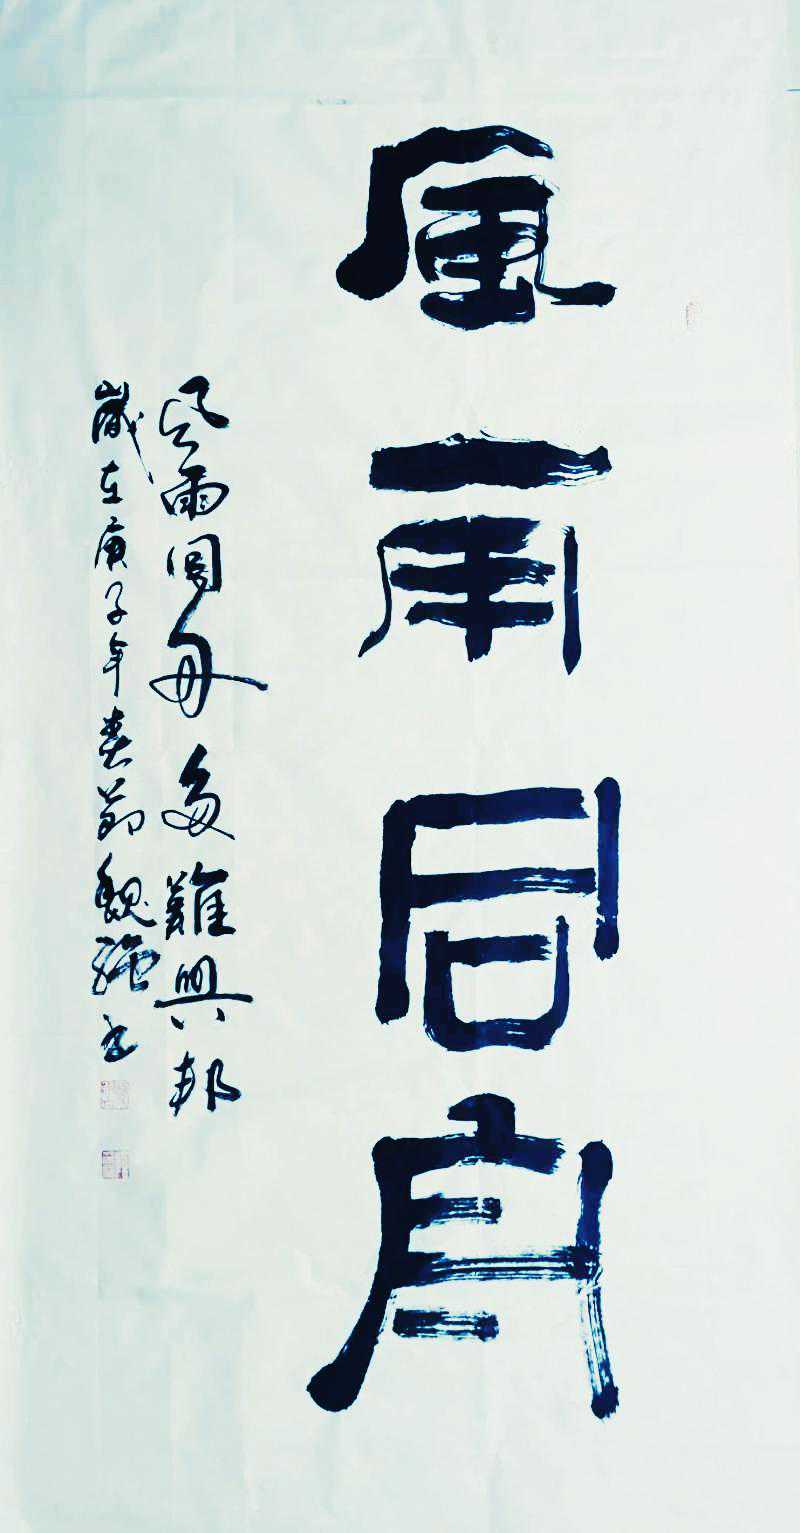 風雨同舟
風雨同舟多難興邦
歲在庚子年春節魏強書